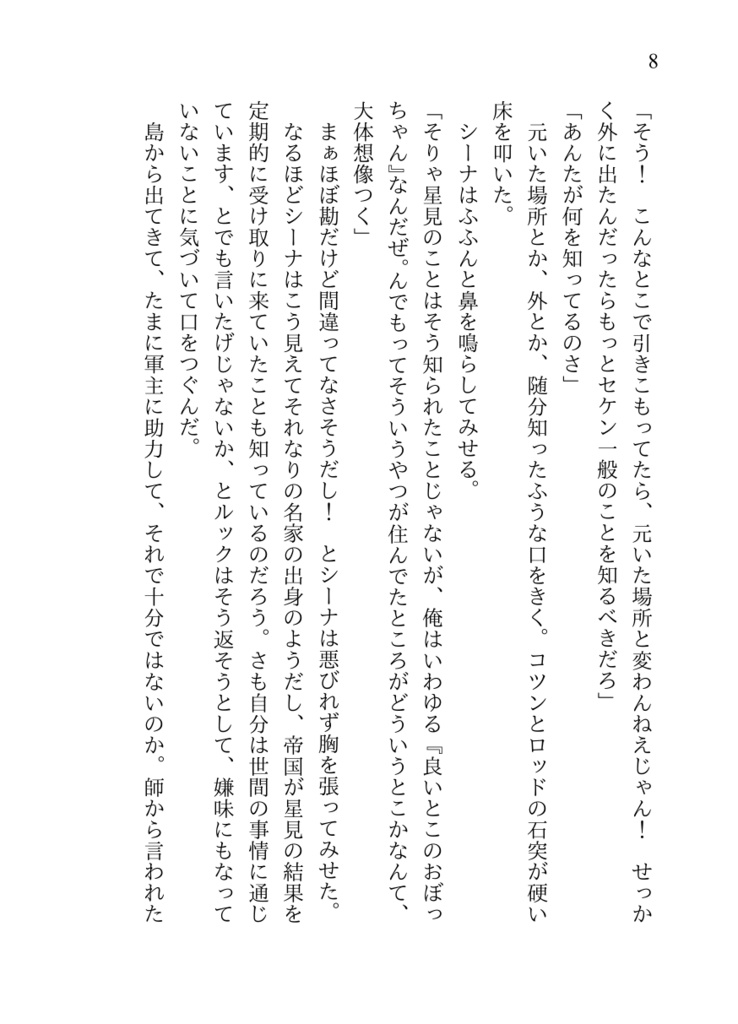 8
「そう！　こんなとこで引きこもってたら、元いた場所と変わんねえじゃん！　せっか
く外に出たんだったらもっとセケン一般のことを知るべきだろ」
「あんたが何を知ってるのさ」
　元いた場所とか、外とか、随分知ったふうな口をきく。コツンとロッドの石突が硬い
床を叩いた。
　シーナはふふんと鼻を鳴らしてみせる。
「そりゃ星見のことはそう知られたことじゃないが、俺はいわゆる『良いとこのおぼっ
ちゃん』なんだぜ。んでもってそういうやつが住んでたところがどういうとこかなんて、
大体想像つく」
　まぁほぼ勘だけど間違ってなさそうだし！　とシーナは悪びれず胸を張ってみせた。
　なるほどシーナはこう見えてそれなりの名家の出身のようだし、帝国が星見の結果を
定期的に受け取りに来ていたことも知っているのだろう。さも自分は世間の事情に通じ
ています、とでも言いたげじゃないか、とルックはそう返そうとして、嫌味にもなって
いないことに気づいて口をつぐんだ。
　島から出てきて、たまに軍主に助力して、それで十分ではないのか。師から言われた